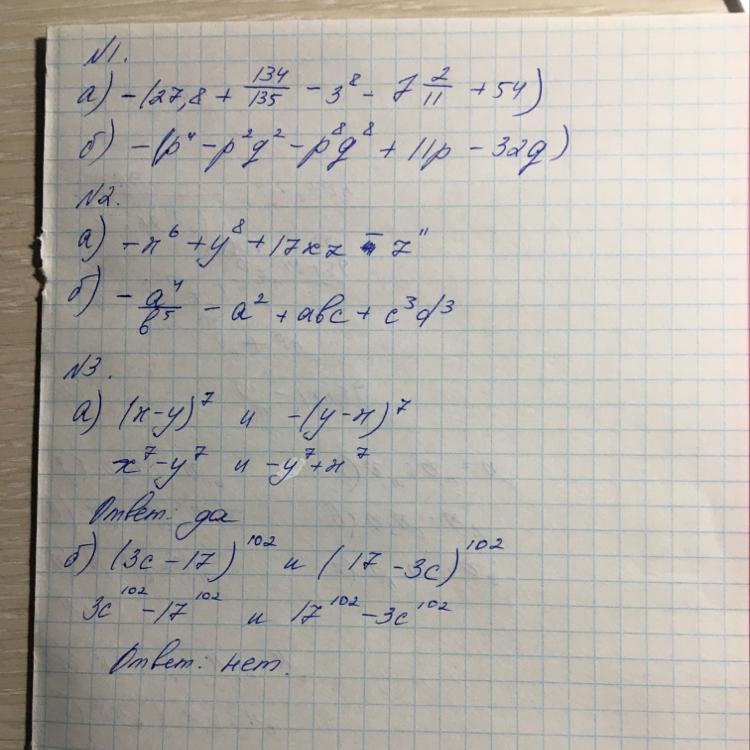 №1.
а) -(27,8 + 134/135 - 3⁸ - 7 2/11 + 54)
б) -(p⁴ - p²q² - p⁸q⁸ + 11p - 32q)
№2.
а) -x⁶ + y⁸ + 17xz - z¹¹
б) - a⁴/b⁵ - a² + abc + c³d³
№3.
а) (x-y)⁷ и -(y-x)⁷
x⁷-y⁷ и -y⁷+x⁷
Ответ: да
б) (3c-17)¹⁰² и (17-3c)¹⁰²
3c¹⁰²-17¹⁰² и 17¹⁰²-3c¹⁰²
Ответ: нет.